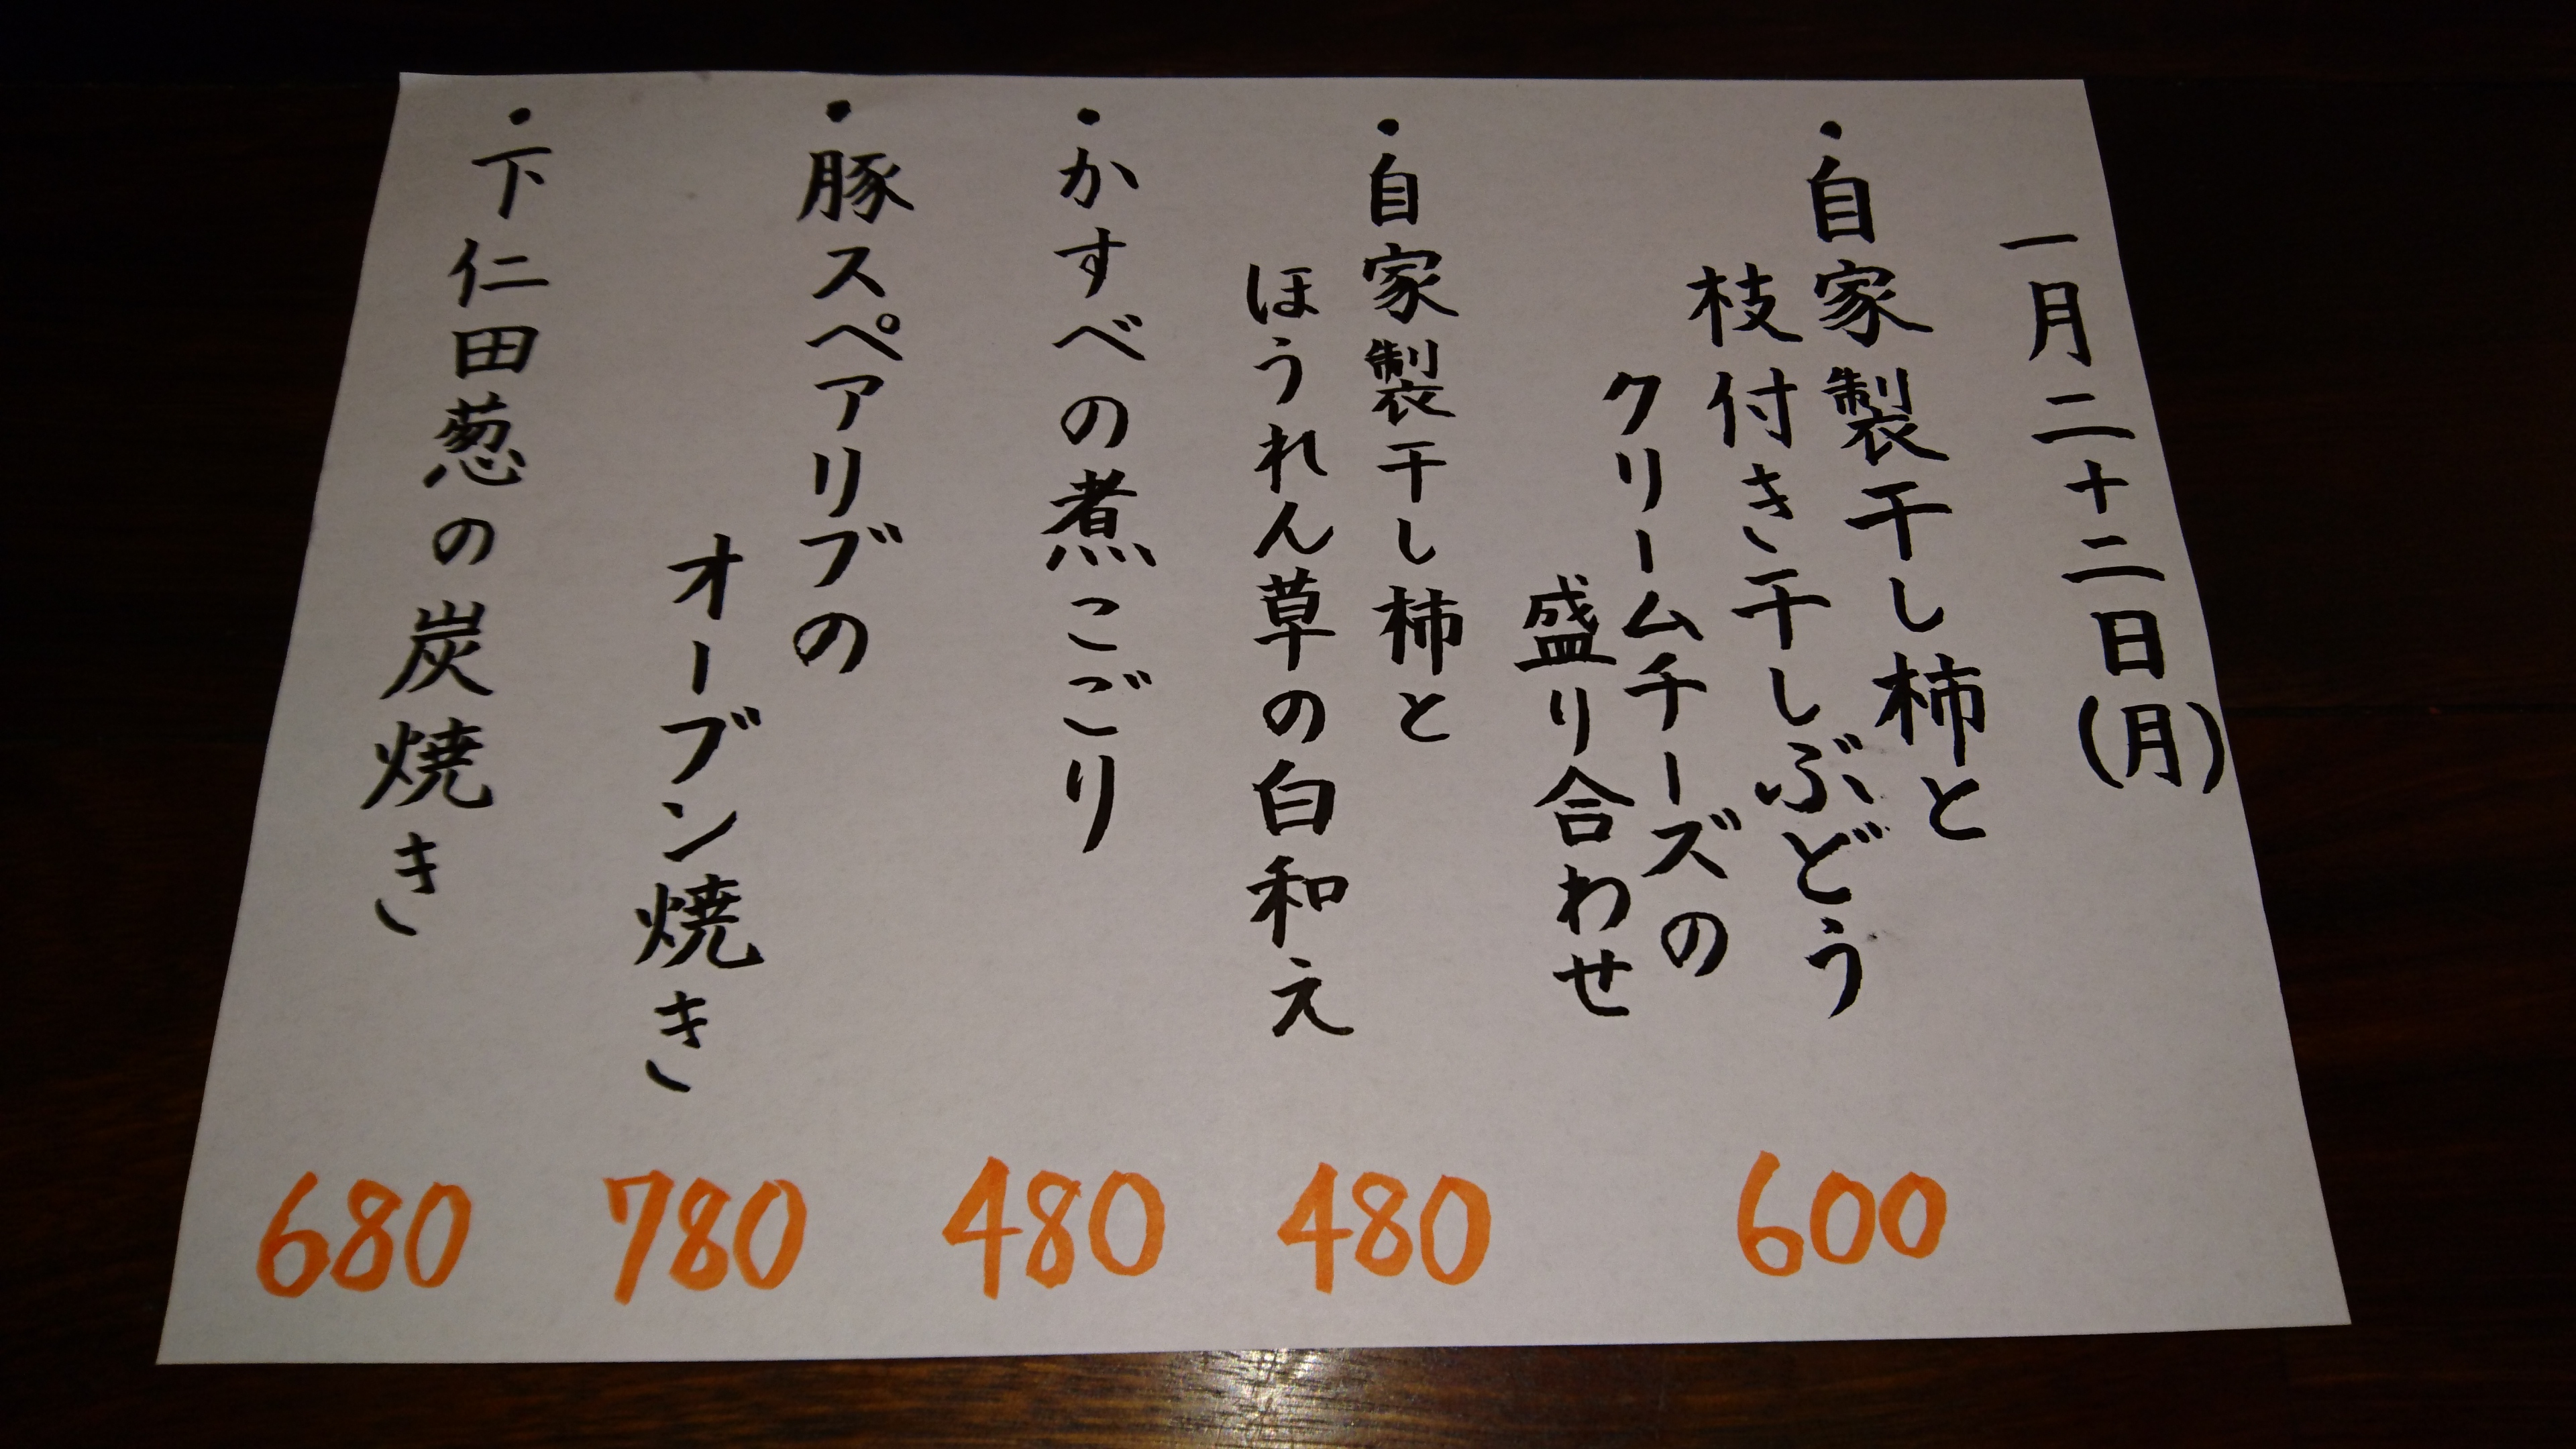 一月二十二日(月)
・自家製干し柿と
枝付き干しぶどう
クリームチーズの
盛り合わせ
600
・自家製干し柿と
ほうれん草の白和え
480
・かすべの煮こごり
480
・豚スペアリブの
オーブン焼き
780
・下仁田葱の炭焼き
680